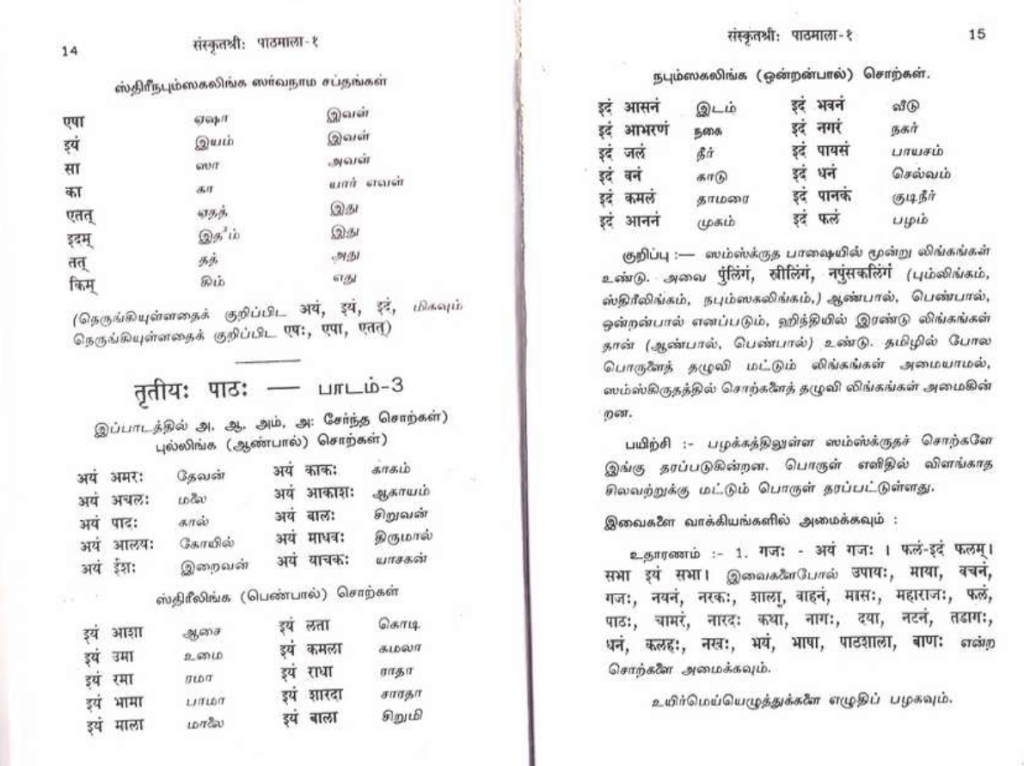 14
संस्कृतश्रीः पाठमाला-१
ஸ்திரீநபும்ஸகலிங்க ஸர்வநாம சப்தங்கள்
एषा ஏஷா இவள்
इयं இயம் இவள்
सा ஸா அவள்
का கா யார் எவள்
एतत् ஏதத் இது
इदम् இத³ம் இது
तत् தத் அது
किम् கிம் எது
(நெருங்கியுள்ளதைக் குறிப்பிட अयं, इयं, इदं, மிகவும்
நெருங்கியுள்ளதைக் குறிப்பிட एषः, एषा, एतत्)
तृतीयः पाठः — பாடம்-3
இப்பாடத்தில் அ, ஆ, அம், அ: சேர்ந்த சொற்கள்)
புல்லிங்க (ஆண்பால்) சொற்கள்)
अयं अमरः தேவன் अयं काकः காகம்
अयं अचलः மலை अयं आकाशः ஆகாயம்
अयं पादः கால் अयं बालः சிறுவன்
अयं आलयः கோயில் अयं माधवः திருமால்
अयं ईशः இறைவன் अयं याचकः யாசகன்
ஸ்திரீலிங்க (பெண்பால்) சொற்கள்
इयं आशा ஆசை इयं लता கொடி
इयं उमा உமை इयं कमला கமலா
इयं रमा ரமா इयं राधा ராதா
इयं भामा பாமா इयं शारदा சாரதா
इयं माला மாலை इयं बाला சிறுமி
संस्कृतश्रीः पाठमाला-१
15
நபும்ஸகலிங்க (ஒன்றன்பால்) சொற்கள்.
इदं आसनं இடம் इदं भवनं வீடு
इदं आभरणं நகை इदं नगरं நகர்
इदं जलं நீர் इदं पायसं பாயசம்
इदं वनं காடு इदं धनं செல்வம்
इदं कमलं தாமரை इदं पानकं குடிநீர்
इदं आननं முகம் इदं फलं பழம்
குறிப்பு :— ஸம்ஸ்க்ருத பாஷையில் மூன்று லிங்கங்கள்
உண்டு. அவை पुंलिंगं, स्त्रीलिंगं, नपुंसकलिंगं (பும்லிங்கம்,
ஸ்திரீலிங்கம், நபும்ஸகலிங்கம்,) ஆண்பால், பெண்பால்,
ஒன்றன்பால் எனப்படும், ஹிந்தியில் இரண்டு லிங்கங்கள்
தான் (ஆண்பால், பெண்பால்) உண்டு. தமிழில் போல
பொருளைத் தழுவி மட்டும் லிங்கங்கள் அமையாமல்,
ஸம்ஸ்கிருதத்தில் சொற்களைத் தழுவி லிங்கங்கள் அமைகின்
றன.
பயிற்சி :- பழக்கத்திலுள்ள ஸம்ஸ்க்ருதச் சொற்களே
இங்கு தரப்படுகின்றன. பொருள் எளிதில் விளங்காத
சிலவற்றுக்கு மட்டும் பொருள் தரப்பட்டுள்ளது.
இவைகளை வாக்கியங்களில் அமைக்கவும் :
உதாரணம் :- 1. गजः - अयं गजः । फलं-इदं फलम्।
सभा इयं सभा। இவைகளைபோல் उपायः, माया, वचनं,
गजः, नयनं, नरकः, शाला, वाहनं, मासः, महाराजः, फलं,
पाठः, चामरं, नारदः कथा, नागः, दया, नटनं, तडागः,
धनं, कलहः, नखः, भयं, भाषा, पाठशाला, बाणः என்ற
சொற்களை அமைக்கவும்.
உயிர்மெய்யெழுத்துக்களை எழுதிப் பழகவும்.